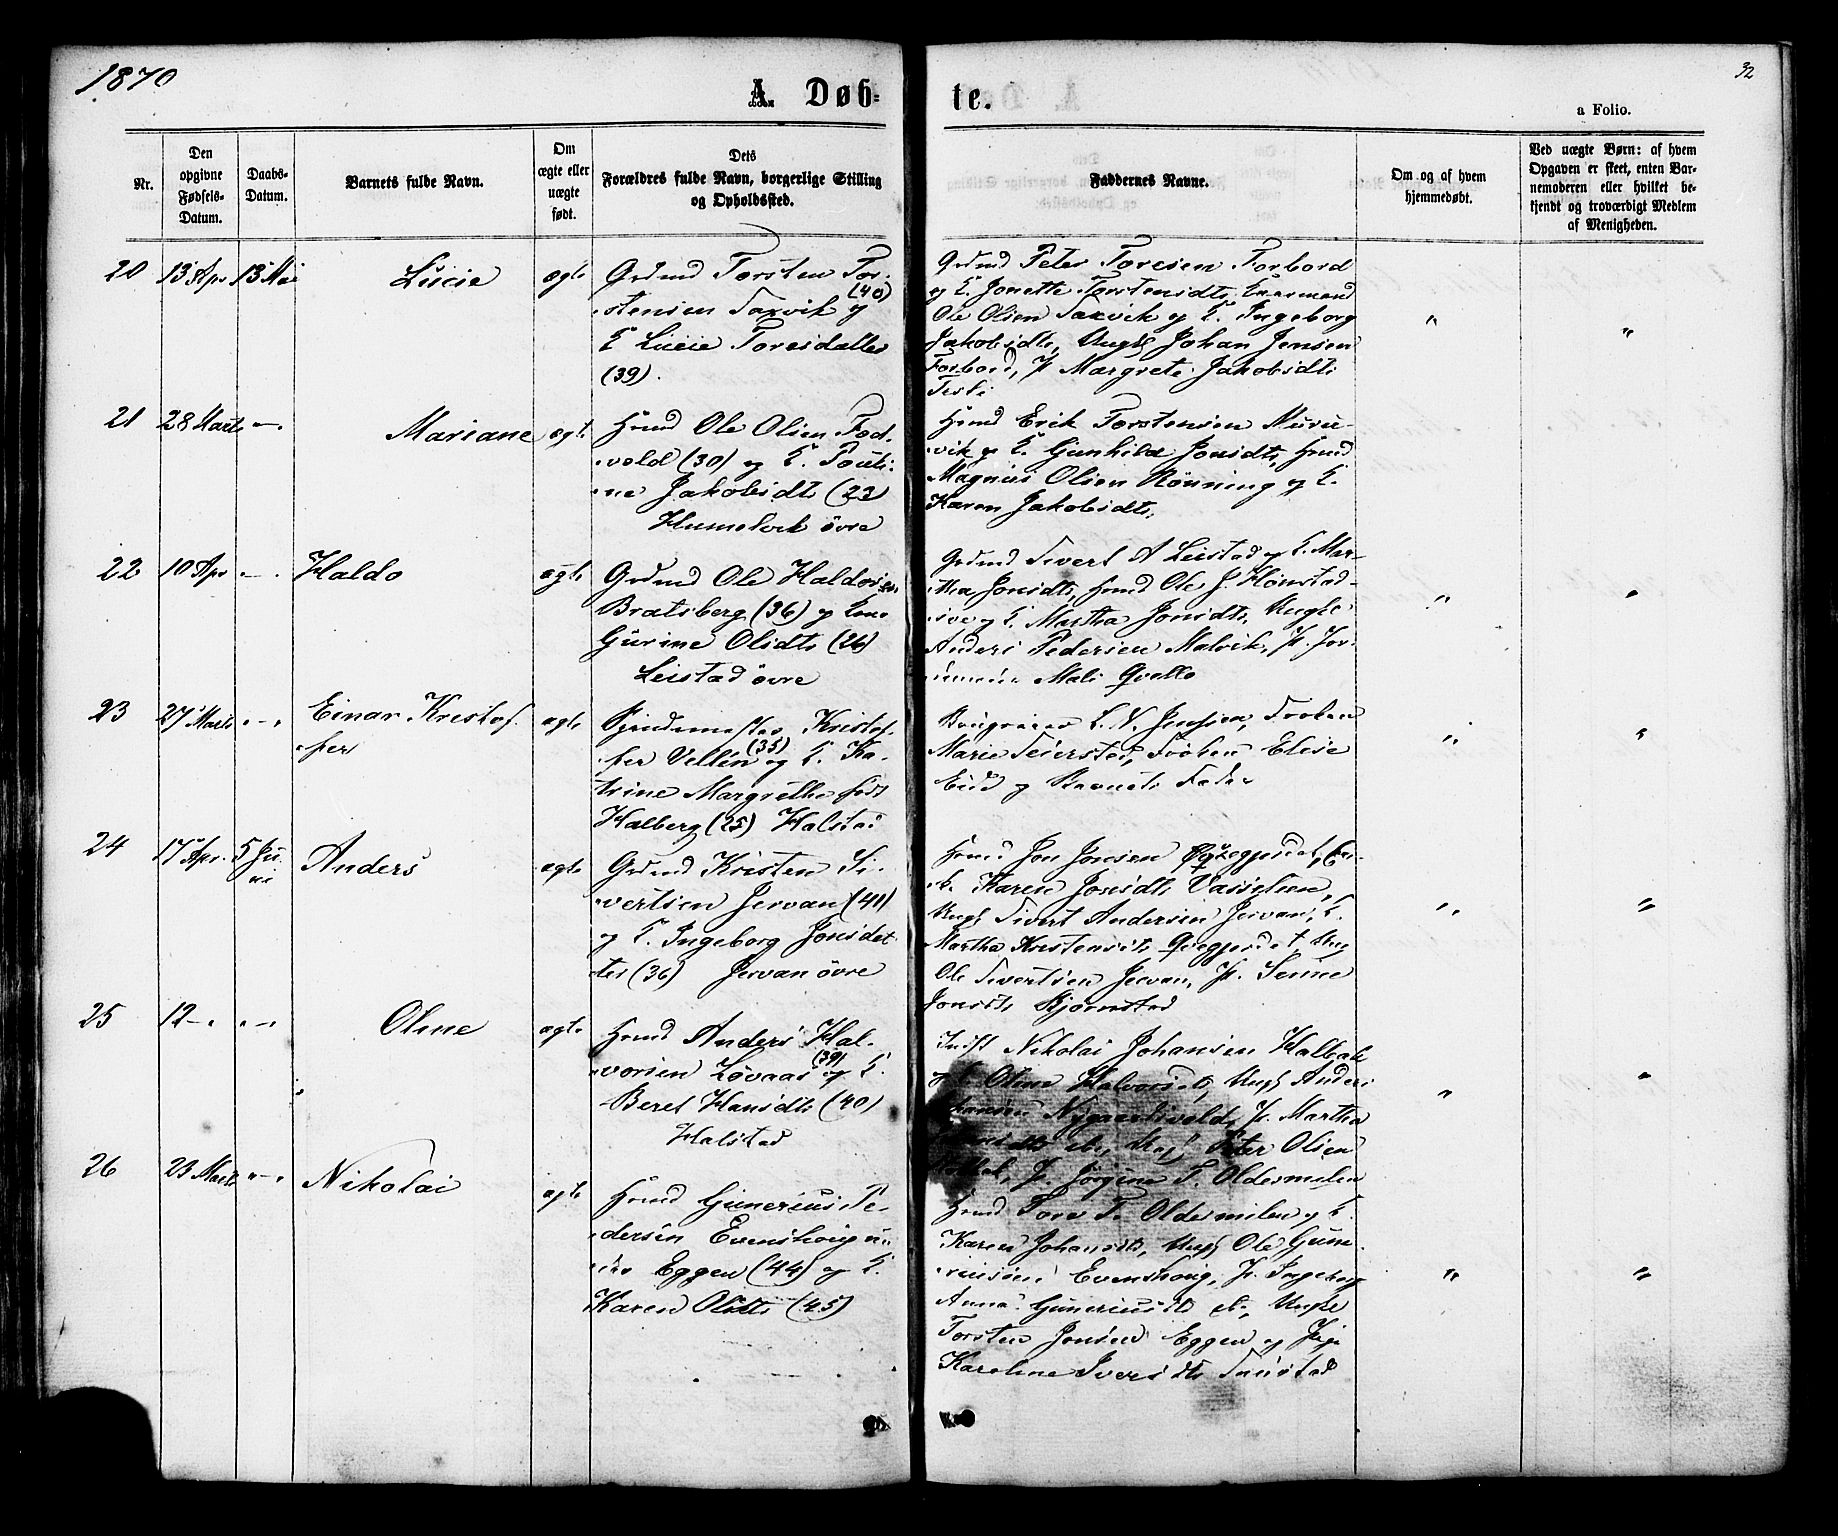 1870
A. Døb-
te.
32
a Folio.
Nr.
Den
opgivne
Fødsels-
Datum.
Daabs-
Datum.
Barnets fulde Navn.
Om
ægte eller
uægte
født.
Dets
Forældres fulde Navn, borgerlige Stilling
og Opholdssted.
Faddernes Navne.
Om og af hvem
hjemmedøbt.
Ved uægte Børn: af hvem
Opgaven er skeet, enten Bar-
nemoderen eller hvilket be-
kjendt og troværdigt Medlem
af Menigheden.
20 13 Apr 13 Mai Lucie ægte
Grdmd Torsten Tor-
stensen Saxvik (40) og
K Lucie Toresdatter
(39).
Grdmd Peter Toresen Forbord
og K. Jonetta Torstensdtr,
Ole Olsen Saxvik og K. Ingeborg
Jakobsdtr, Ungk Johan Jensen
Forbord, P. Margrete Jakobsdtr
" "
21 28 Marts -"- Mariane ægte
Hmd Ole Olsen Fod-
vold (30) og K. Pauli-
ne Jakobsdtr (23)
Humelvik övre
Hmd Erik Torstensen Muru-
vik og K. Gunhild Jonsdtr, Hmd
Magnus Olsen Rönning og K.
Karen Jakobsdtr,
22 10 Apr -"- Haldo ægte
Grdmd Ole Haldorsen
Bratsberg (36) og Kone
Gurine Olsdtr (26)
Leistad övre
Grdmd Sivert A Leistad og K. Mar-
tha Jonsdtr, Hmd Ole J. Hönstad-
og K. Martha Jonsdtr, Ungk
Anders Pedersen Malvik, P.
Mali
" "
23 27 Marts "-" Einar Kristof-
fer
ægte
Kristof-
fer Vellin (35) og K. Ka-
trine Margrethe født
Halberg (25) Halstad
Jenssen, Frøken
Marie Frøken Elise
og Barnets Fader
" "
24 17 Apr. 5 Ju-
ni
Anders
ægte
Grdmd Kristen Si-
vertsen Jervan (40)
og K. Ingeborg Jonsdat-
ter (36) Jervan övre
Hmd Jon Jonsen
Karen Jonsdtr Vasseljen,
Ungk Sivert Andersen Jervan, K.
Martha Kristensdtr Ung
Ole Sivertsen Jervan, P.
Jonsdtr Bjørnstad
" "
25 12 -"- "-" Oline ægte
Hmd Anders Hal-
vorsen Løvaas (39) og K.
Beret Hansdtr (40)
Halstad
Indst Nikolai Johansen Halbak
og K. Oline Halvorsdtr, Ungk Anders
P. Martha
Peter Olsen
P. Jørgine T. Oldermelen
" "
26 23 Marts "-" Nikolai
ægte
Hmd Gunerius Pe-
dersen Evenshoug un-
der Eggen (44) og K.
Karen Olsdtr (45)
Hmd Tore T. Oldermelen og K.
Karen Johansdtr, Ungk Ole Gune-
riusen Evenshoug, P. Ingeborg
Anna Guneriusdtr Ungk
Torsten Jonsen Eggen og Pige
Karoline Iversdtr
" "